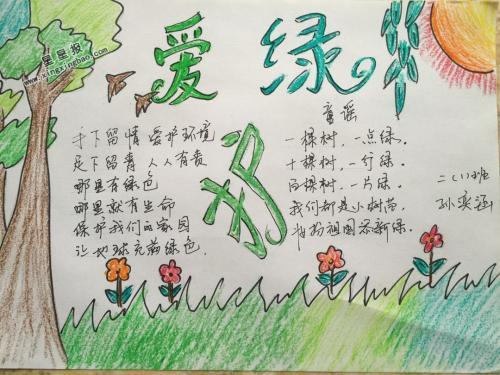 星星报
www.xingxingbao.com
爱绿
护
手下留情 爱护环境
足下留青 人人有责
哪里有绿色
哪里就有生命
保护我们的家园
让地球充满绿色.
童谣
一棵树，一点绿.
十棵树，一行绿.
百棵树，一片绿.
我们都是小树苗.
祖国添新绿.
二(1)班
孙奕涵